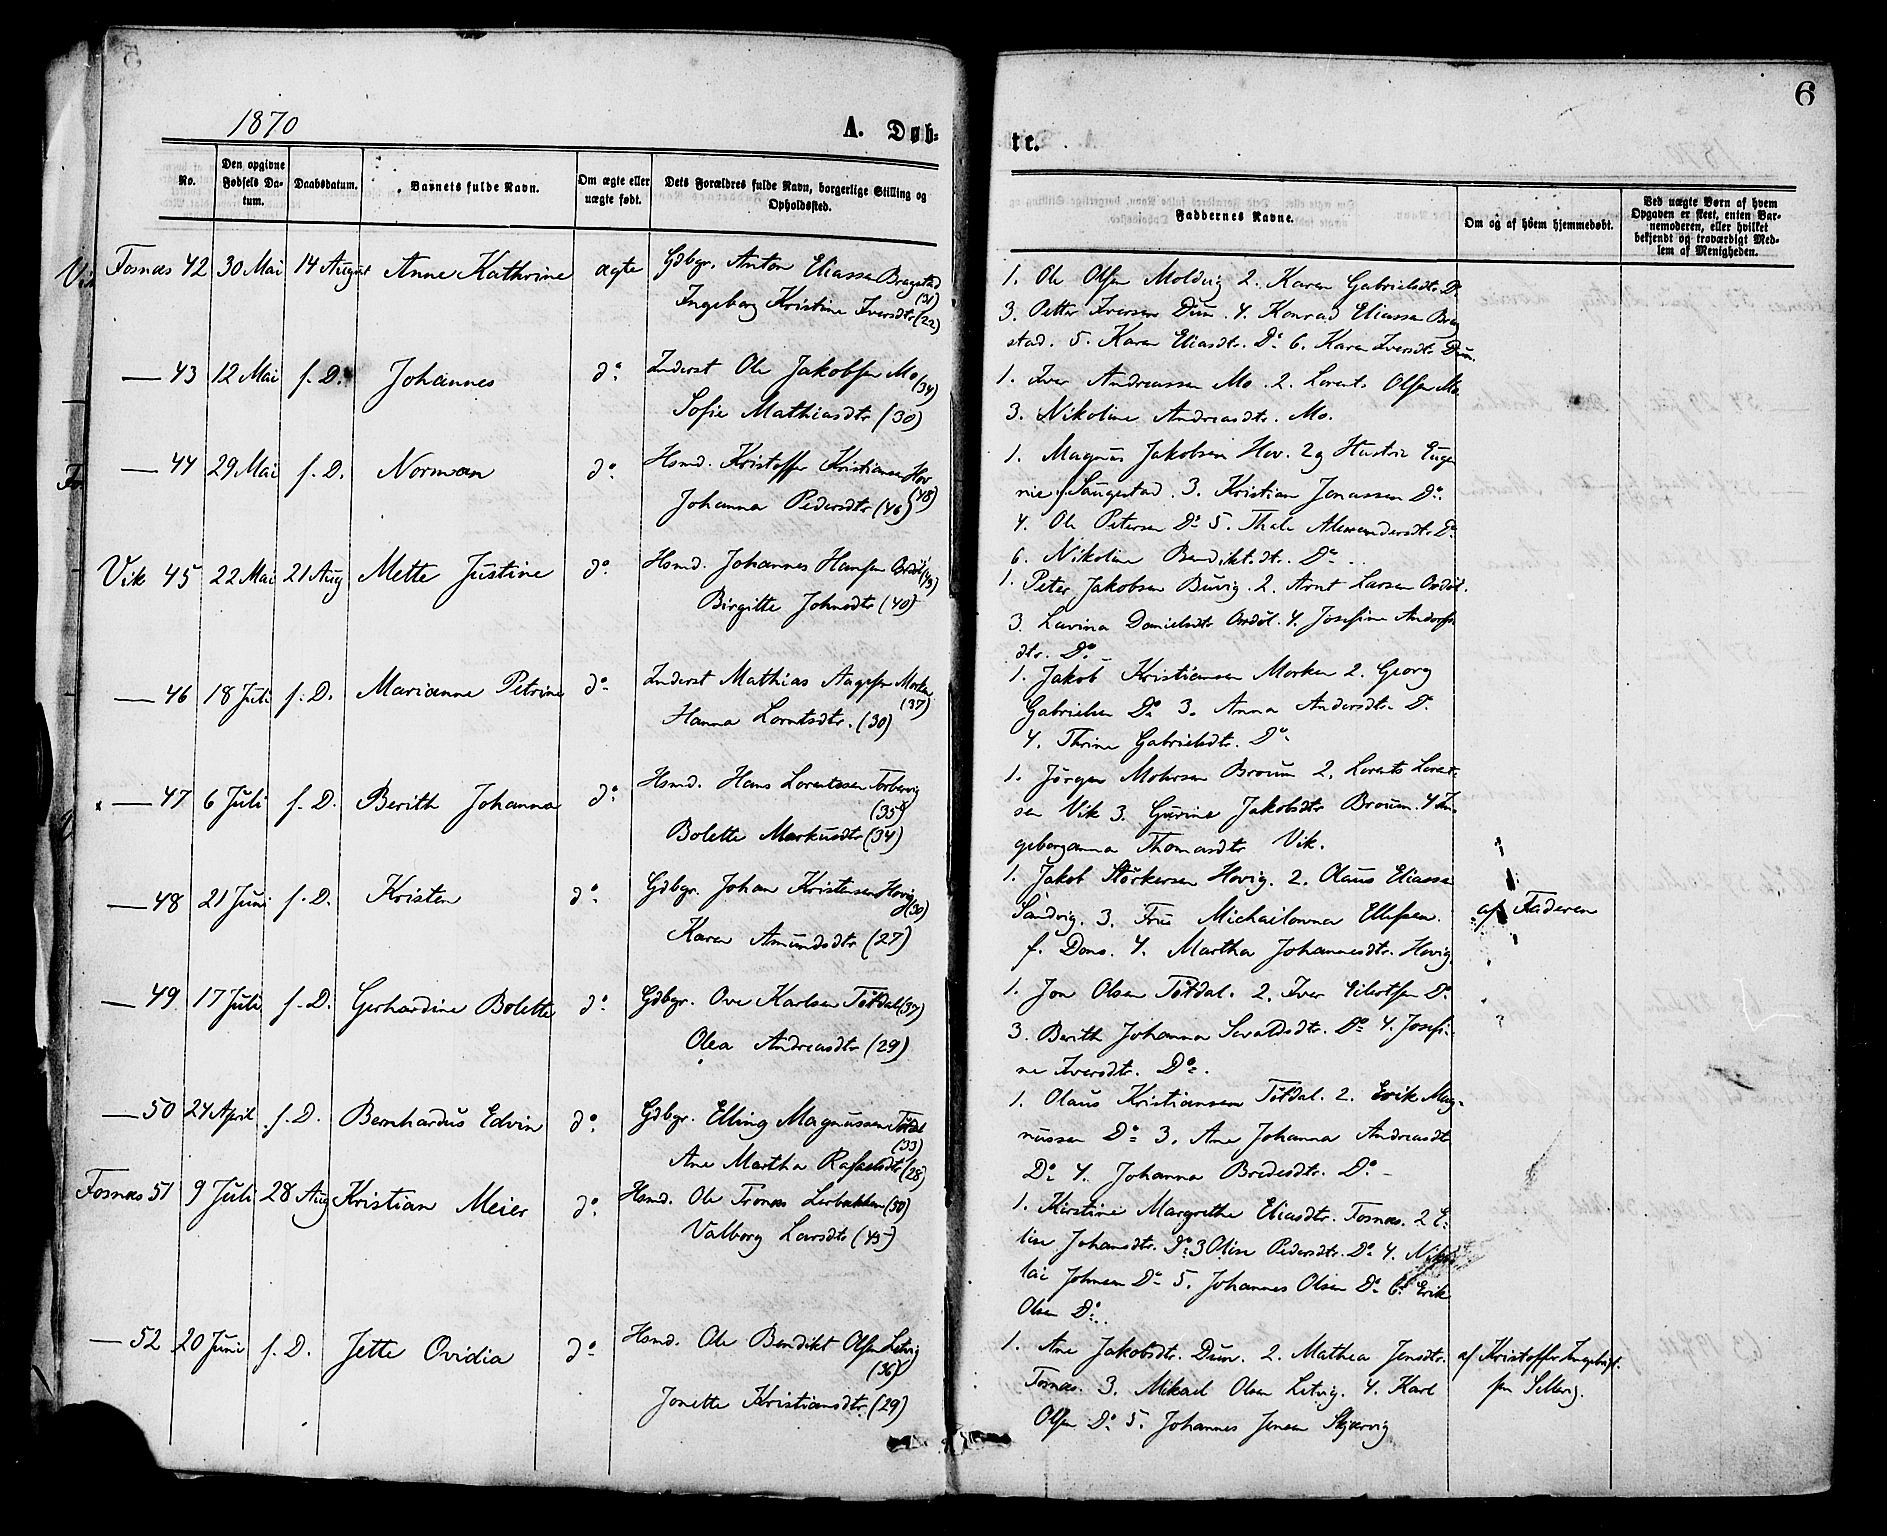 1870
A. Døb-
No.
Den opgivne Fødsels Datum.
Daabsdatum.
Barnets fulde Navn.
Om ægte eller uægte født.
Dets Forældres fulde Navn, borgerlige Stilling og Opholdssted.
Fosnæs 42 30 Mai 14 August Anne Kathrine ægte Gdbgr. Anton Eliassen Bragstad (31)
Ingeborg Kristine Iversdtr (22)
— 43 12 Mai s. D. Johannes do Inderst Ole Jakobsen Mo (34)
Sofie Mathiasdtr (30)
— 44 29 Mai s. D. Norman do Hsmd. Kristoffer Kristiansen Hov (48)
Johanna Pedersdtr (46)
Vik 45 22 Mai 21 Aug Mette Justine do Hsmd. Johannes Hansen
Birgitte Johnsdtr (40)
— 46 18 Juli s. D. Marianne Petrine do Inderst Mathias Aagesen Morken (37)
Hanna Lorntsdtr. (30)
— 47 6 Juli s. D. Berith Johanna do Hsmd. Hans Lorentzen (35)
Bolette Markusdtr (34)
— 48 21 Juni s. D. Kristen do Gdbgr. Johan Kristensen Hovig (30)
Karen Amundsdtr (27)
— 49 17 Juli s. D. Gerhardine Bolette do Gdbgr. Ove Karlsen Tøtdal (37)
Olea Andreasdtr (29)
— 50 24 April s. D. Bernhardus Edvin do Gdbgr. Elling Magnussen Tøtdal (33)
Ane Martha Rafaelsdtr (28)
Fosnæs 51 9 Juli 28 Aug Kristian Meier do Hsmd. Ole Tronæs Lerbakken (50)
Valborg Larsdtr (45)
— 52 20 Juni s. D. Jette Ovidia do Hsmd. Ole Bendikt Olsen Letvig (36)
Jonette Kristiansdtr (29)
6
te.
Faddernes Navne.
Om og af hvem hjemmedøbt.
Ved uægte Børn af hvem Opgaven er skeet, enten Barnemoderen, eller hvilket bekjendt og troværdigt Medlem af Menigheden.
1. Ole Olsen Moldvig 2. Karen Gabrielsdtr. Do
3. Petter Iversen Dun. 4. Konrad Eliassen Brag
stad. 5. Karen Eliasdtr. Do 6. Karen Iversdtr Dun.
1. Iver Andreassen Mo. 2. Lorents Olsen Mo.
3. Nikoline Andreasdtr. Mo.
1. Magnus Jakobsen Hov. 2 og Hustru Euge
nie f. Saugestad. 3. Kristian Jonassen Do.
4. Ole Petersen Do 5. Thale Alexandersdtr. Do
6. Nikoline Bendiktsdtr. Do
1. Peter Jakobsen Buvig. 2. Arnt Larsen
3. Lavina Danielsdtr 4. Josefine
dtr. Do
1. Jakob Kristiansen Morken 2. Georg
Gabrielsen Do 3. Anna Andersdtr. Do
4. Thrine Gabrielsdtr. Do
1. Jørgen Mohrsen Broum 2. Lorents Lorent-
sen Vik 3. Gurine Jakobsdtr Broum. 4 In-
geborganna Thomasdtr Vik.
1. Jakob Størkersen Hovig. 2. Olaus Eliassen
Sandvig. 3. Frue Michaelonna Ellefsen.
f. Dons. 4. Martha Johannesdtr. Hovig.
af Faderen
1. Jon Olsen Tøtdal. 2. Iver Eilertsen Do
3. Berith Johanna Sivaldsdtr. Do 4. Josefi-
ne Iversdtr. Do.
1. Olaus Kristiansen Tøtdal. 2. Erik Mag-
nussen Do 3. Ane Johanna Andreasdtr
Do 4. Johanna Bredesdtr. Do
1. Kirstine Margrethe Eliasdtr. Fosnæs. 2 E-
lise Johansdtr. Do 3 Olise Pedersdtr. Do 4. Niko
lai Johnsen Do 5. Johannes Olsen Do 6. Erik
Olsen Do
1. Ane Jakobsdtr. Dun. 2. Mathea Jensdtr.
Fosnæs. 3. Mikael Olsen Letvig. 4. Karl
Olsen Do 5. Johannes Jensen Skjærvig
af Kristoffer Ingebrigt-
sen Sellevig.